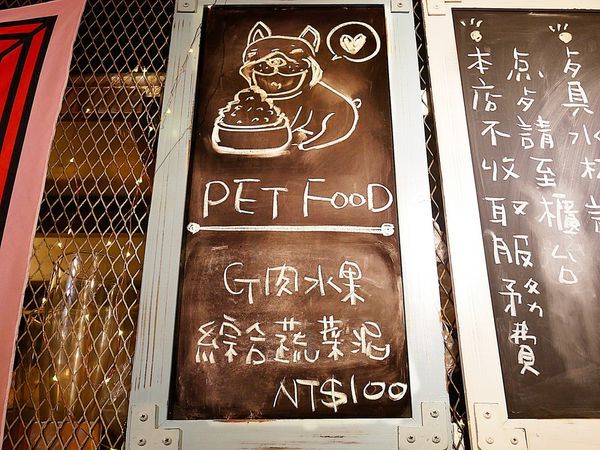 PET FOOD
G肉水果
綜合蔬葉泥
NT$100
歺具水杯
点歺請至櫃台
本店不收取服務費